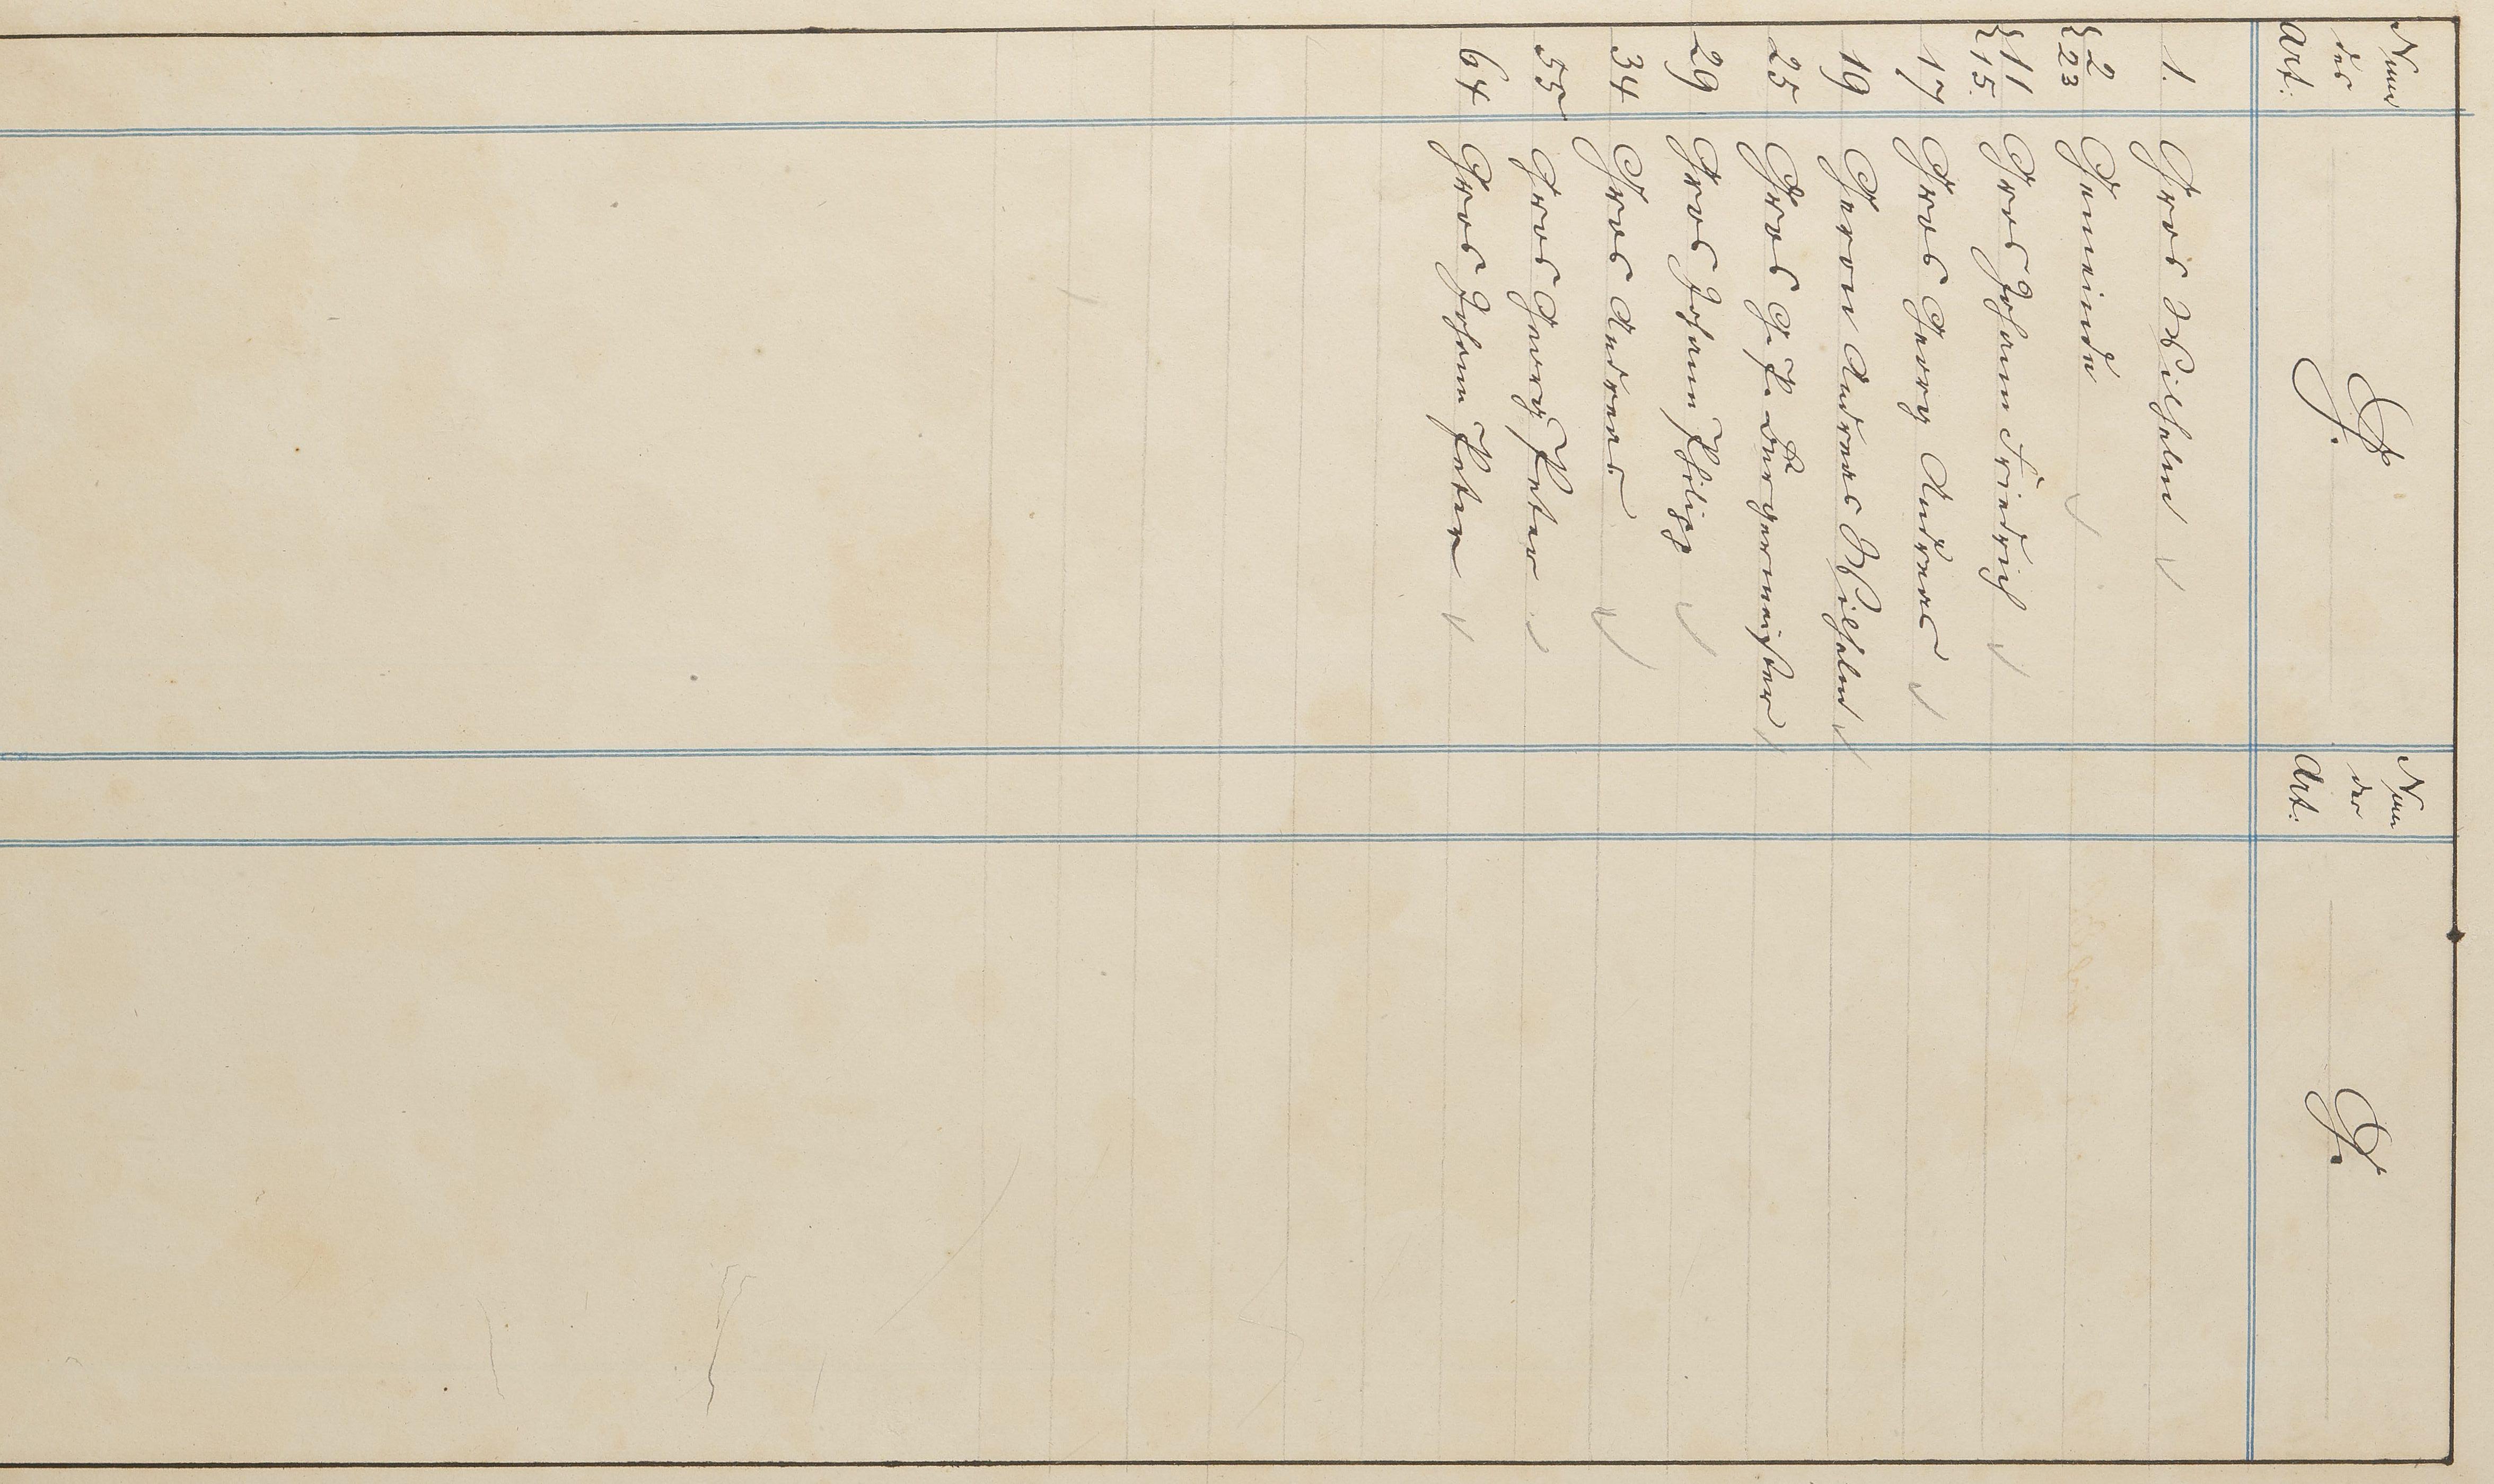 Num
der
Art.
G.
Num
der
Art.
G.
1. Gros Wilhelm
{ 2
23 Gemeinde
{ 11
15. Gros Johann Friedrich
17 Gros Georg Andreas
19 Geron Andreas Wilhelm
25 Gros G. P. Bürgermeister
29 Gros Johann Philipp
34 Gros Andreas
55 Gros Georg Peter
64 Gros Johann Peter